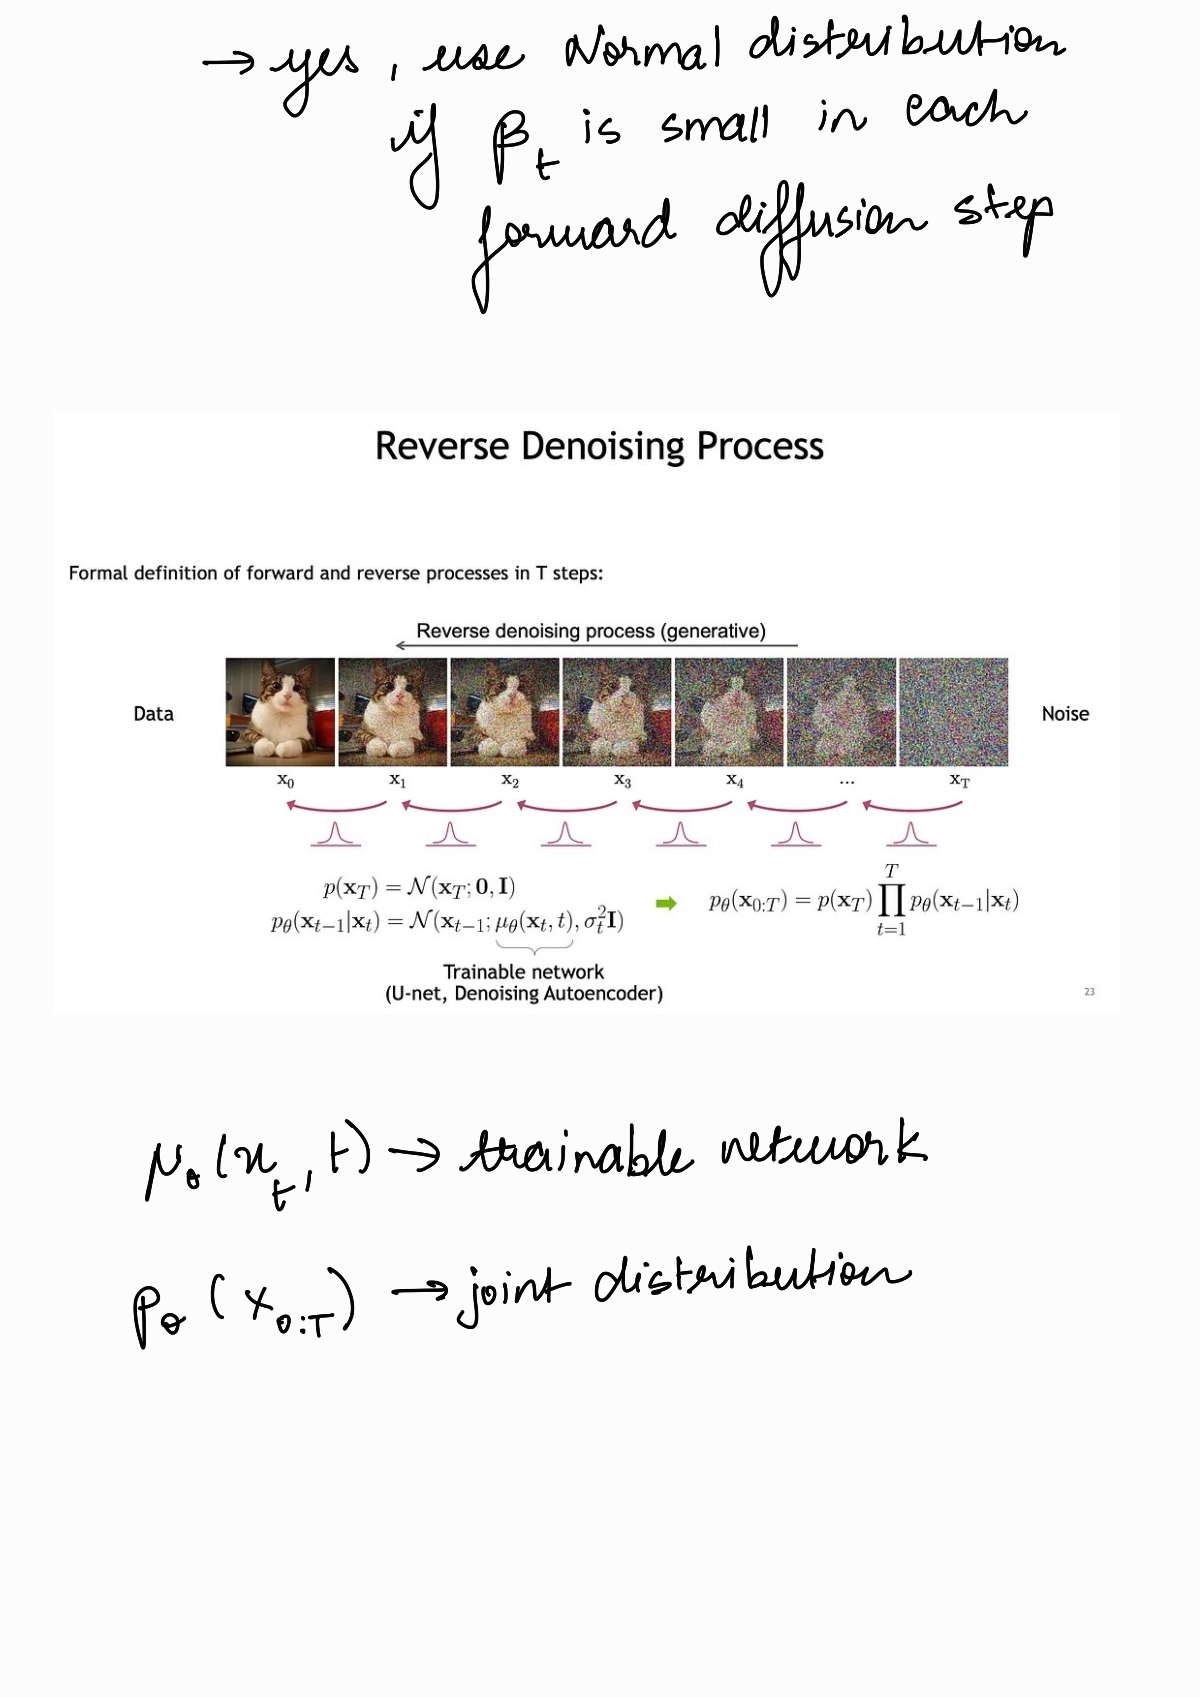 → yes, use Normal distribution
if βt is small in each
forward diffusion step
Reverse Denoising Process
Formal definition of forward and reverse processes in T steps:
Reverse denoising process (generative)
Data
Noise
x₀ x₁ x₂ x₃ x₄ ... x_T
p(x_T) = 𝒩(x_T; 0, I)
p_θ(x_{t−1}|x_t) = 𝒩(x_{t−1}; μ_θ(x_t, t), σ_t² I)
➡ p_θ(x_{0:T}) = p(x_T) ∏_{t=1}^{T} p_θ(x_{t−1}|x_t)
Trainable network
(U-net, Denoising Autoencoder)
23
μ_θ(x_t, t) → trainable network
p_θ(x_{0:T}) → joint distribution